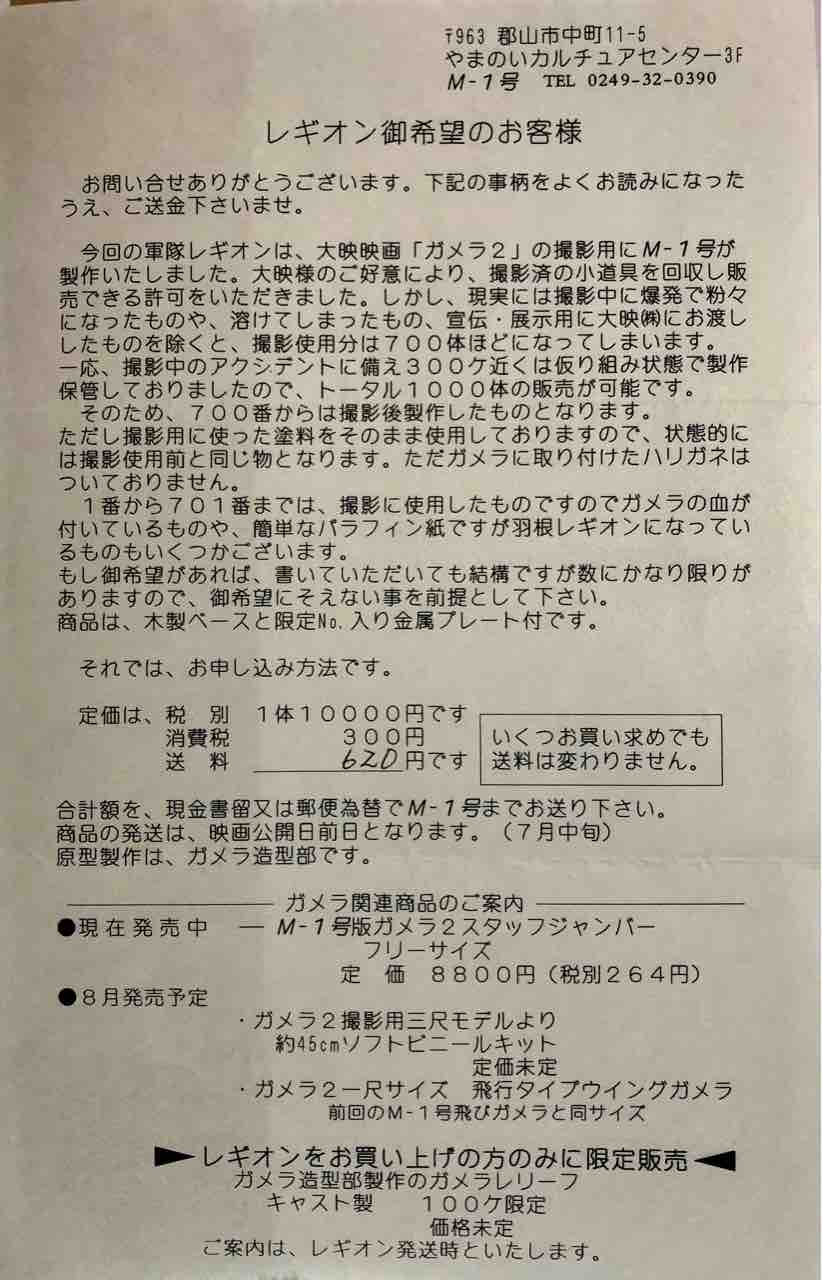 〒963 郡山市中町11-5
やまのいカルチュアセンター3F
M-1号 TEL 0249-32-0390
レギオン御希望のお客様
お問い合せありがとうございます。下記の事柄をよくお読みになった
うえ、ご送金下さいませ。
今回の軍隊レギオンは、大映映画「ガメラ2」の撮影用にM-1号が
製作いたしました。大映様のご好意により、撮影済の小道具を回収し販
売できる許可をいただきました。しかし、現実には撮影中に爆発で粉々
になったものや、溶けてしまったもの、宣伝・展示用に大映㈱にお渡し
したものを除くと、撮影使用分は700体ほどになってしまいます。
一応、撮影中のアクシデントに備え300ケ近くは仮り組み状態で製作
保管しておりましたので、トータル1000体の販売が可能です。
そのため、700番からは撮影後製作したものとなります。
ただし撮影用に使った塗料をそのまま使用しておりますので、状態的に
は撮影使用前と同じ物となります。ただガメラに取り付けたハリガネは
ついておりません。
1番から701番までは、撮影に使用したものですのでガメラの血が
付いているものや、簡単なパラフィン紙ですが羽根レギオンになってい
るものもいくつかございます。
もし御希望があれば、書いていただいても結構ですが数にかなり限りが
ありますので、御希望にそえない事を前提として下さい。
商品は、木製ベースと限定No.入り金属プレート付です。
それでは、お申し込み方法です。
定価は、税 別 1体10000円です
消費税 300円
送 料 620円です
いくつお買い求めでも
送料は変わりません。
合計額を、現金書留又は郵便為替でM-1号までお送り下さい。
商品の発送は、映画公開日前日となります。(7月中旬)
原型製作は、ガメラ造型部です。
ガメラ関連商品のご案内
●現在発売中 ― M-1号版ガメラ2スタッフジャンパー
フリーサイズ
定 価 8800円(税別264円)
●8月発売予定
・ガメラ2撮影用三尺モデルより
約45cmソフトビニールキット
定価未定
・ガメラ2一尺サイズ 飛行タイプウイングガメラ
前回のM-1号飛びガメラと同サイズ
レギオンをお買い上げの方のみに限定販売
ガメラ造型部製作のガメラレリーフ
キャスト製 100ケ限定
価格未定
ご案内は、レギオン発送時といたします。